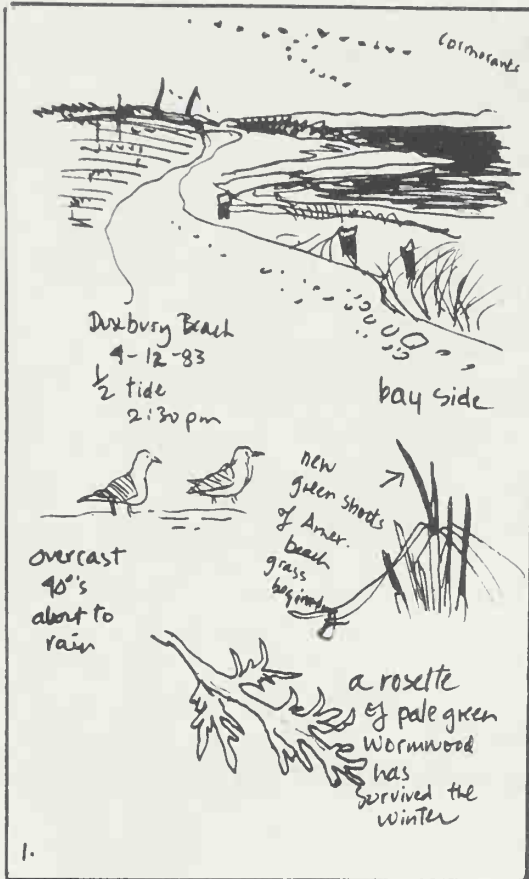 Cormorants
Duxbury Beach
4-12-83
1/2 tide
2:30 pm
bay side
new
green shoots
of Amer.
beach
grass
beginning
overcast
40°'s
about to
rain
a rosette
of pale green
Wormwood
has
survived the
winter
1.